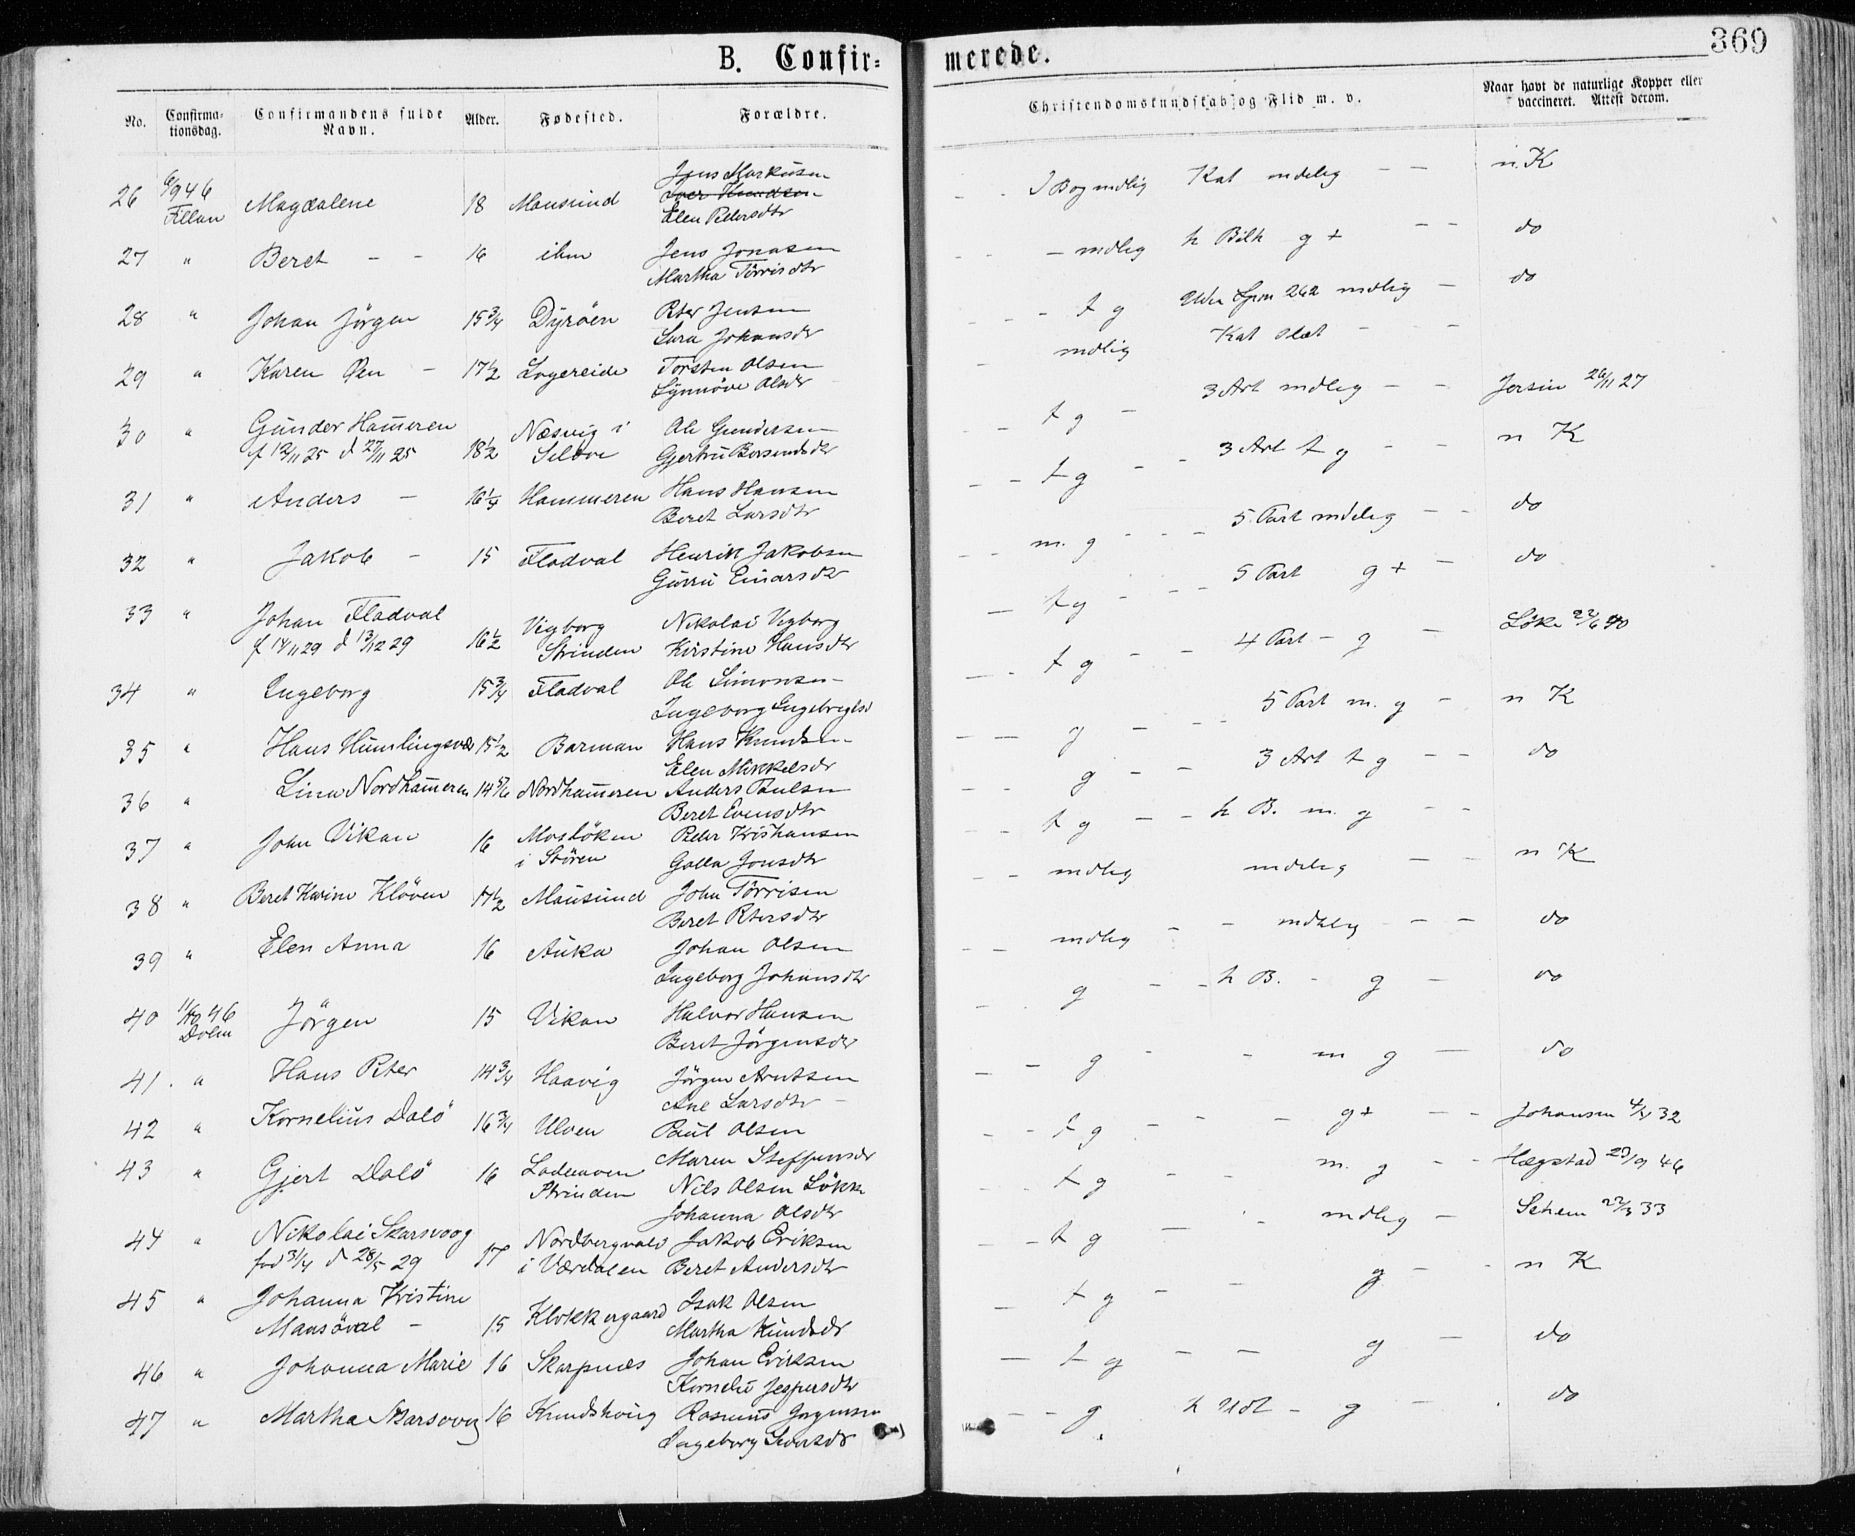 B. Confir=
merede.
369
No.
Confirma-
tionsdag.
Confirmandens fulde
Navn.
Alder.
Fødested.
Forældre.
Christendomskundskab og Flid m. v.
Naar havt de naturlige Kopper eller
vaccineret. Attest derom.
Jens Markusen
26 6/9 46 Magdalene 18 Mausund
Fillan Elen Petersdtr
I Bog mdlig Kat mdelig – – n. K
27 " Beret – – 16 ibm Jens Jonasen
Martha Törrisdtr
– mdlig h Bilh g + – – do
28 " Johan Jörgen 15 3/4 Dyröen Peter Jensen
Sara Johansdr
– – – t g Uden Spm 262 mdlig – do
29 " Karen Øen – 17 1/2 Torsten Olsen
Synnöve Olsdr
– mdlig Kat slet – – –
30 " Gunder Ham̅eren Næsvig i Ole Gundersen
f 12/11 25 d 27/11 25 18 1/2 Selbue Gjertru
t g – 3 Art mdleg – – Jersin 26/11 27
31 " Anders – 16 1/4 Hammeren Hans Hansen
Beret Larsdtr
– – t g – – 3 Art t g – – n K
32 " Jakob – 15 Fladval Henrik Jakobsen
Gurru Einarsdtr
– – m. g – – – 5 Part mdeleg – – do
33 " Johan Fladval Vigborg Nikolai Vigborg
f 14/11 29 d 13/12 29 16 1/2 Strinden Kirstine Hansdtr
– t g – – – 5 Part g + – do
34 " Ingeborg 15 3/4 Fladval Ole Simonsen
Ingeborg Engebregtsd
– – t g – – 4 Part – g – Löke 22/6 40
35 " Hans Humlingsvær 15 1/2 Barman Hans Knudsen
Elen Mikkelsdr
– – g – – 5 Part m. g – n K
36 " Lina Nordham̅eren 14 5/6 Nordham̅eren Anders Paulsen
Beret Evensdtr
– – g – – 3 Art t g – – do
37 " John Vikan 16 Mosböken Peder Kristiansen
i Stören Golla Jonsdtr
– – t g – – h B. m. g – –
38 " Beret Karine Klöven 17 1/2 Mausund John Törrisen
Beret Petersdtr
– – mdlig mdelig – – n K
39 " Elen Anna 16 Auka Johan Olsen
Ingeborg Johansdtr
– – mdlig – – mdtelig – – do
40 11/10 46 Jörgen 15 Vikan Halvor Hansen
Dolm Beret Jörgensdr
– . g – – h B. – g – do
41 . " Hans Peter 14 3/4 Haavig Jörgen Arntsen
Ane Larsdtr –
– – g – – m g – do
42 " Kornelius Dalö 16 3/4 Ulven Paul Olsen
Maren Steffensdr
– – t g – – – g+ – – Johansen 4/4 32
43 " Gjert Dolö 16 Lademoen Nils Olsen Lökke
Strinden Johanna Olsdtr
– – t g – – m. g – – Hægstad 23/9 46
44 " Nikolai Skarsvoog Nordbergvald Jakob Eriksen
fød 3/4 d 28/5 29 17 i Værdalen Beret Andersdtr
– – t g – – mdlig – Schem 22/3 33
45 " Johanna Kristine Isak Olsen
Mausöval – 15 Klokkergaard Martha Knudsdr
– t g – – g – – n K
46 " Johanna Marie 16 Skarpnes Johan Eriksen
Kornelie Jespersdtr
– t g – – g – do
47 " Martha Skarsvoog 16 Knudshoug Rasmus Jørgensen
Ingeborg
– – g h Udt – g – . do